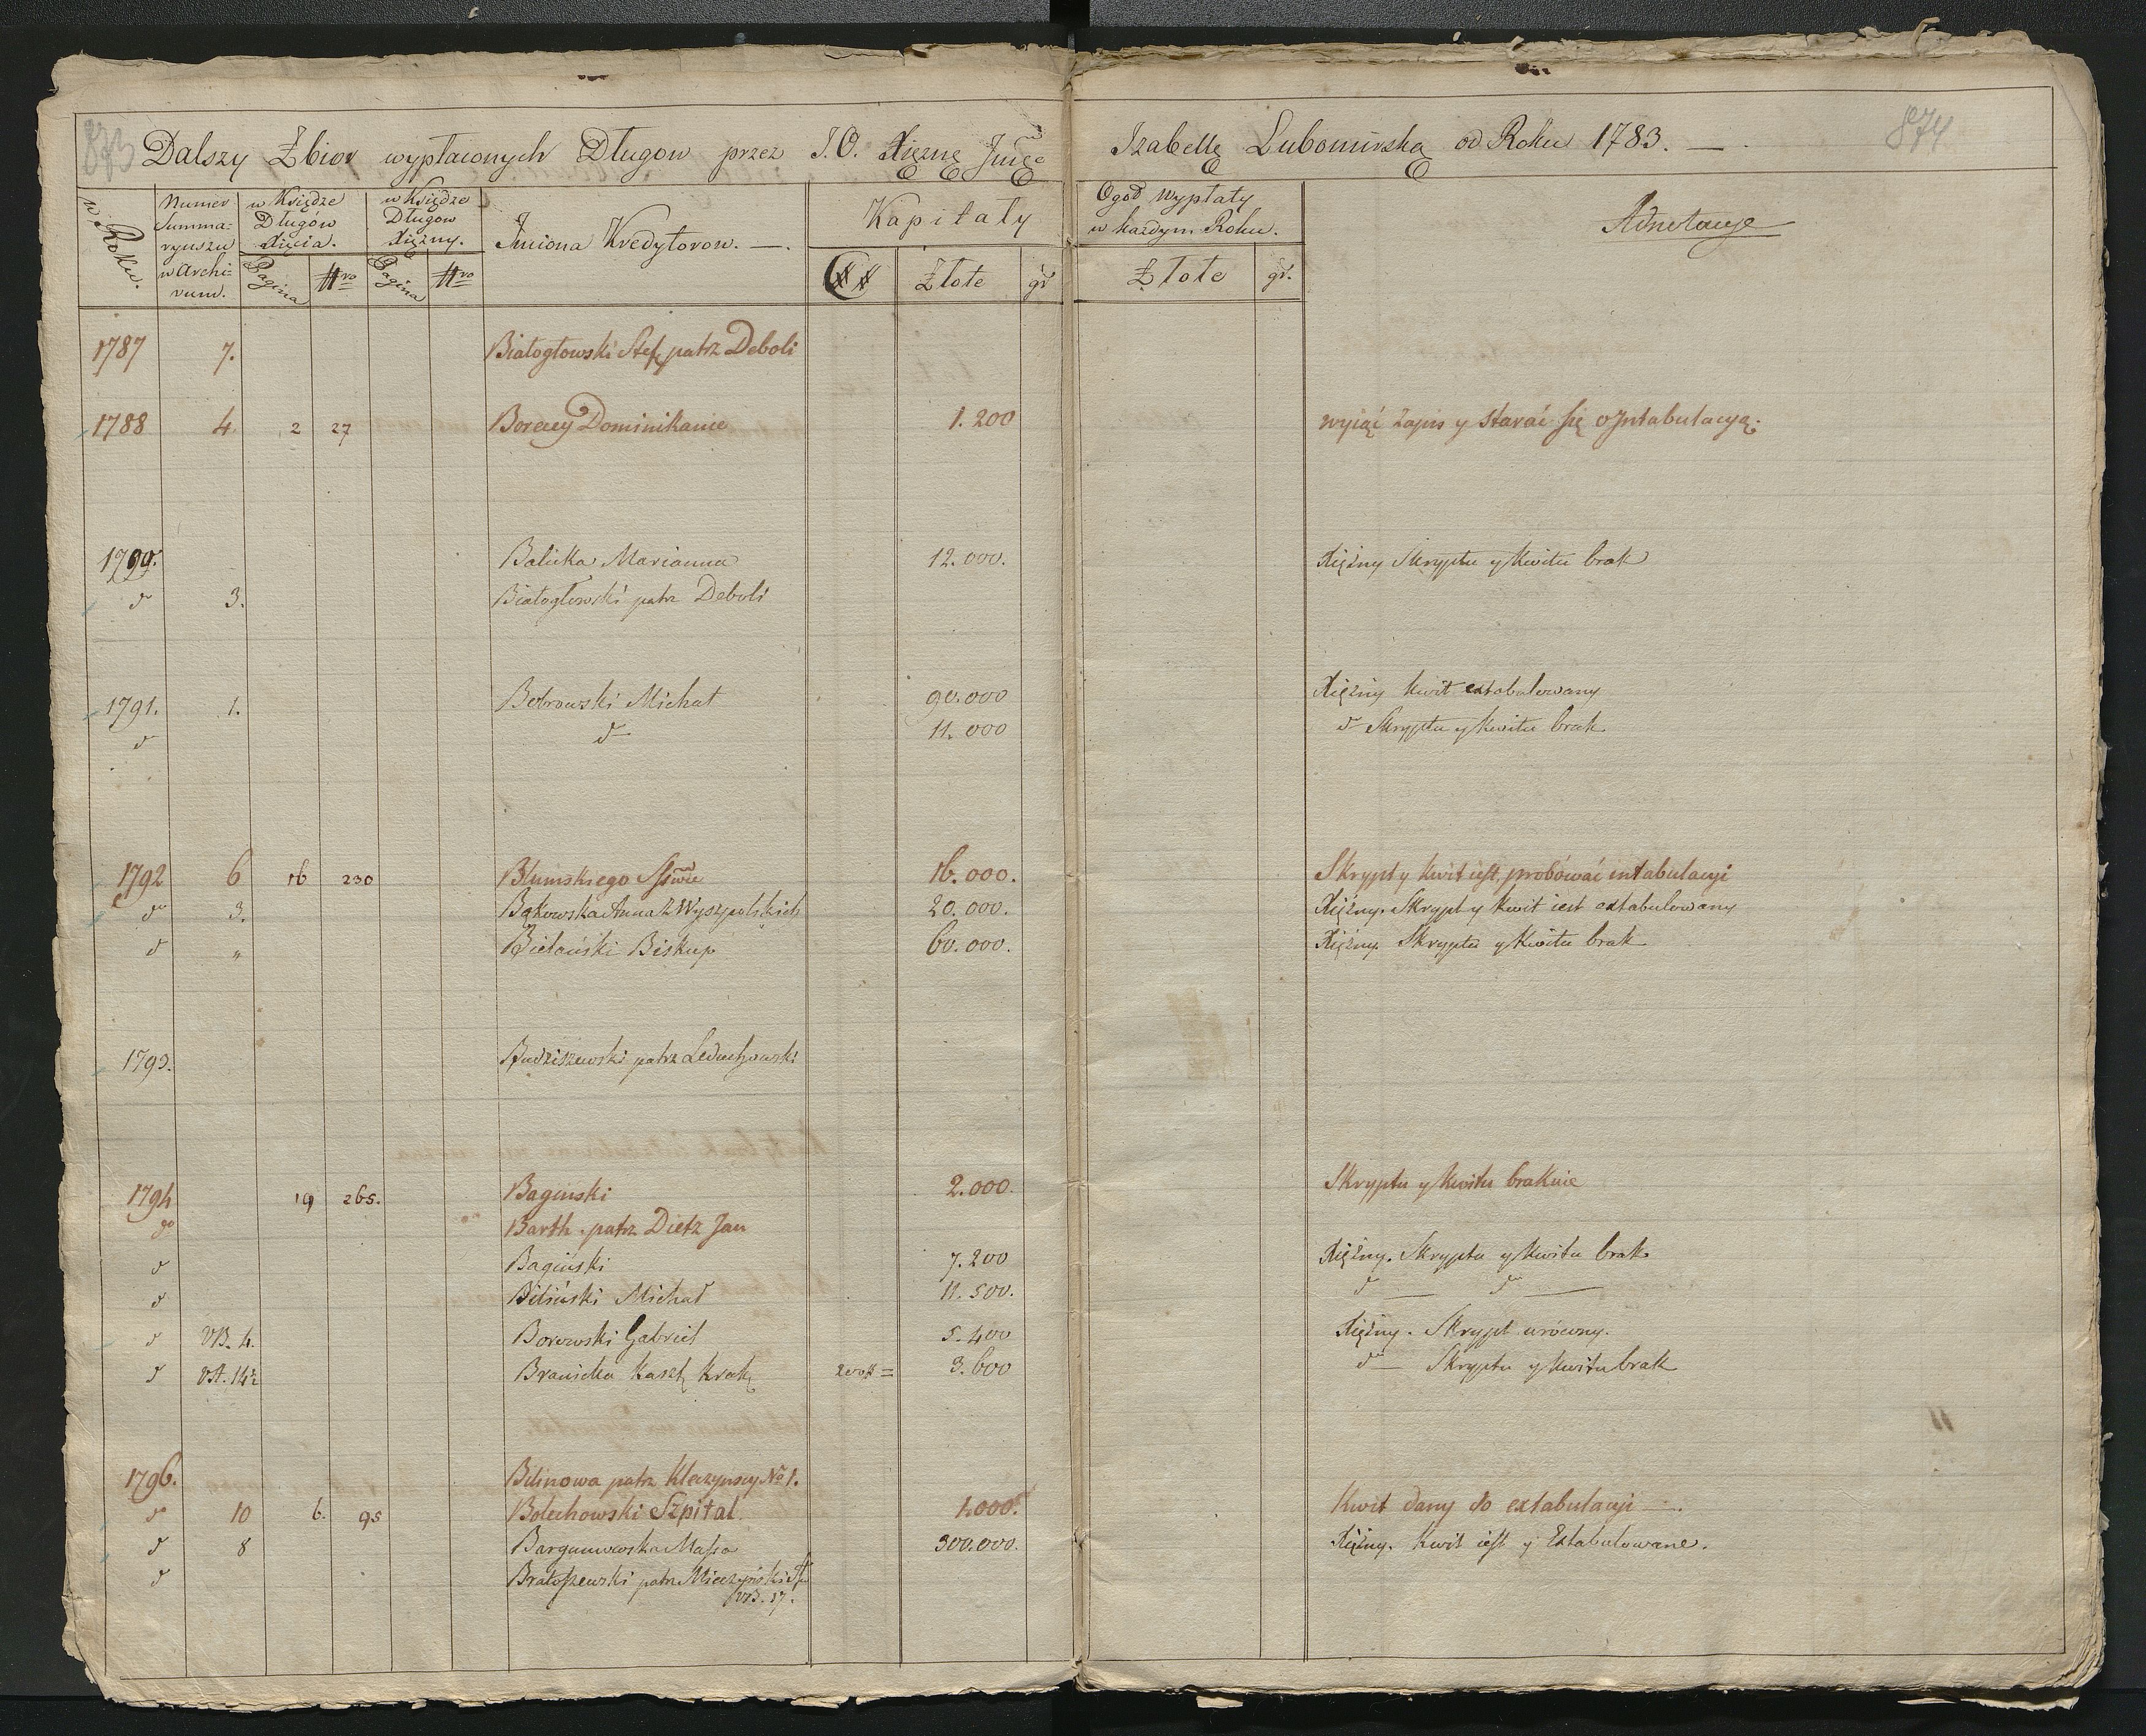 873
874
Dalszy Zbior wypłaconych Długow przez J.O. Xiężnę Jmcę Izabellę Lubomirską od Roku 1783. —
w Roku.
Numer Summa=
ryuszu
w Archi=
vum.
w Księdze
Długów
Xięcia.
Pagina Nro
w Księdze
Długow
Xiężny.
Pagina Nro
Imiona Kredytorow. —.
Kapitały
## Złote gr
Ogoł wypłaty
w każdym Roku.
Złote gr.
Adnotacye
1787 7. Białogłowski Stef. patrz Deboli
1788 4 2 27 Boreccy Dominikanie 1.200 wyiąć zapis y starać się o Intabulacyą.
1790. Balicka Marianna 12.000. Xiężny Skryptu y Kwitu brak
d 3. Białogłowski patrz Deboli
1791. 1. Bobrowski Michał 90.000 Xiężny Kwit extabulowany
d d 11.000 d Skryptu y Kwitu brak
1792 6 16 230 Blumskiego 16.000. Skrypt y Kwit iest, probówać intabulacyi
d 3. Bąkowska Anna z Wyszpolskich 20.000. Xiężny. Skrypt y Kwit iest extabulowany
d " Bielański Biskup 60.000. Xiężny. Skryptu y Kwitu brak
1793. Budziszewski patrz Leduchowski
1794 19 265. Bagiński 2.000. Skryptu y Kwitu braknie
do Barth. patrz Dietz Jan
d Bagiński 7.200 Xiężny. Skryptu y Kwitu brak
d Biliński Michał 11.500. d — d —
d VB. 4. Borowski Gabriel 5.400 Xiężny. Skrypt urówny.
d VA. 14½ Branicka Kaszt. Krak. 200# = 3.600 d — Skryptu y Kwitu brak
1796. Bilinowa patrz Kleczynscy No 1.
d 10 6. 95 Bolechowski Szpital. 1.000. Kwit dany do extabulacyi —.
d 8 Massa 300.000. Xiężny. Kwit iest y Extabulowane.
d Bratoszewski patrz Mieczyński
VB. 17.